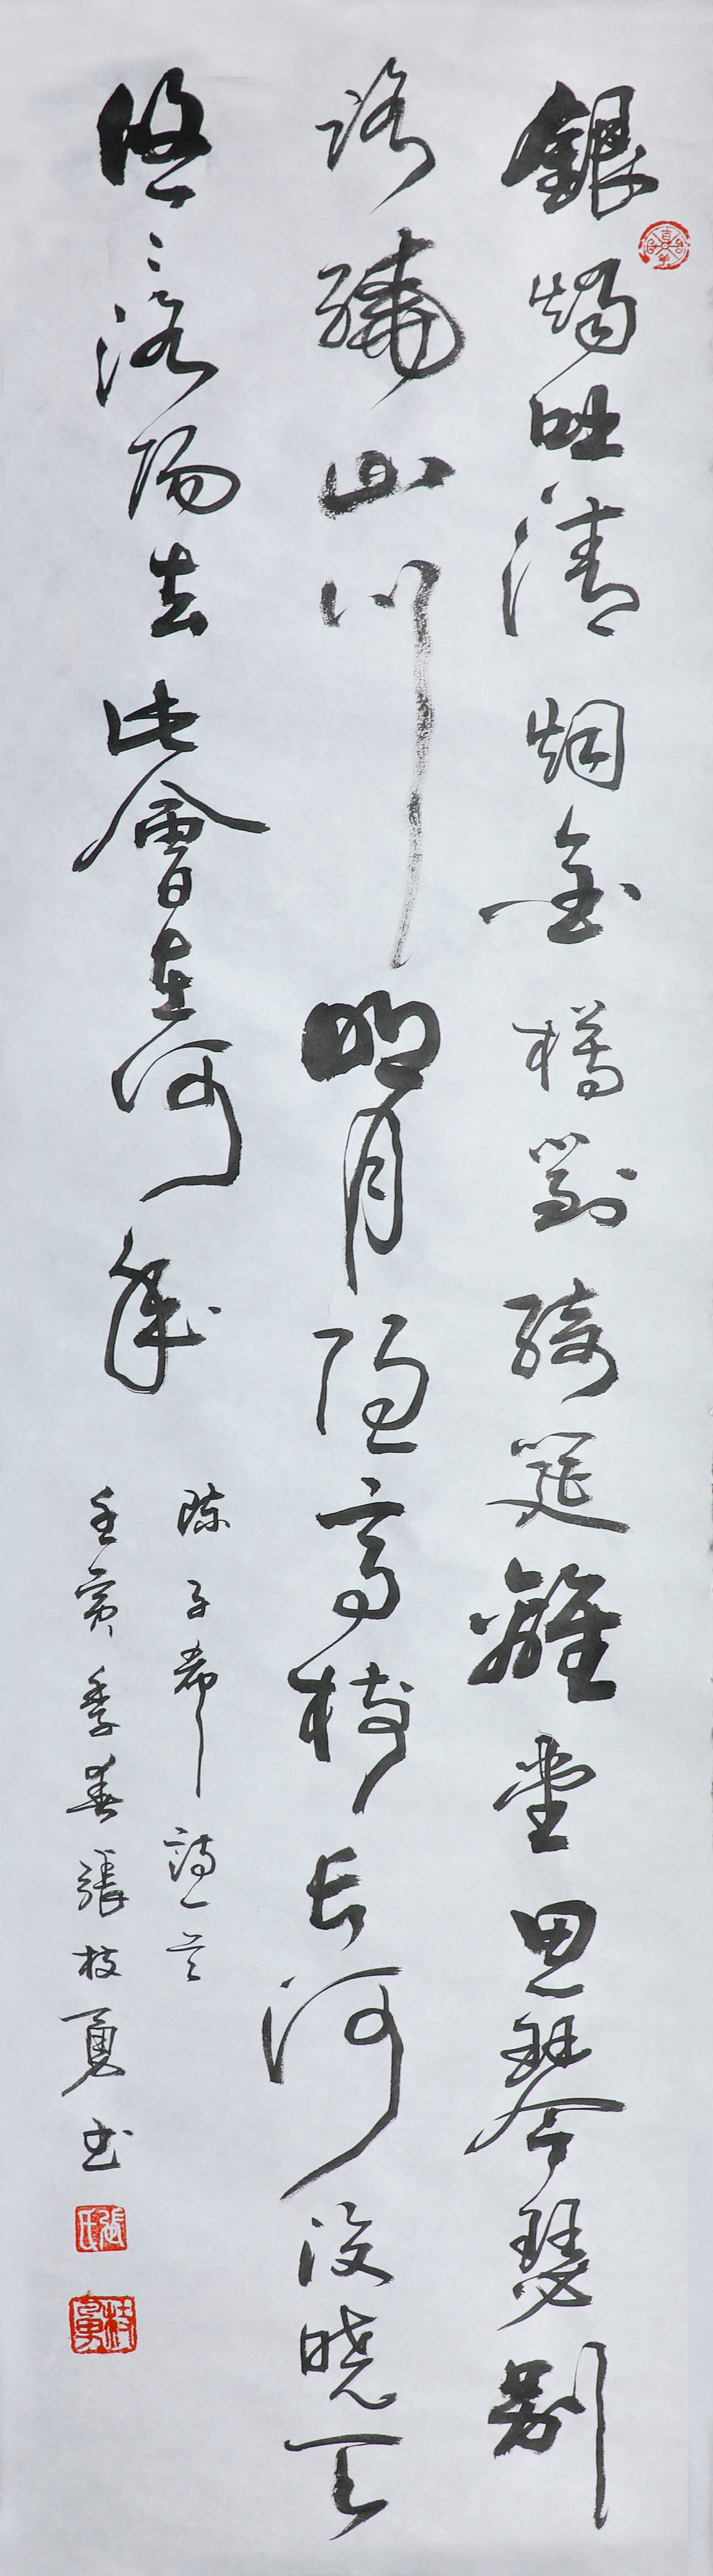 銀燭吐清烟金樽對綺筵離堂思琴瑟別
路繞山川明月隱高樹長河没曉天
悠〻洛陽去此會在何年
陳子昂詩一首
壬寅季春張枝勇书
張氏
枝勇